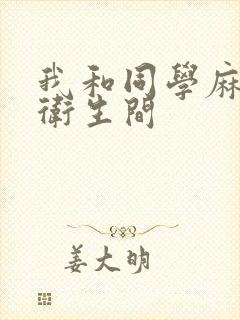 我和同學麻
衛生間
姜大明